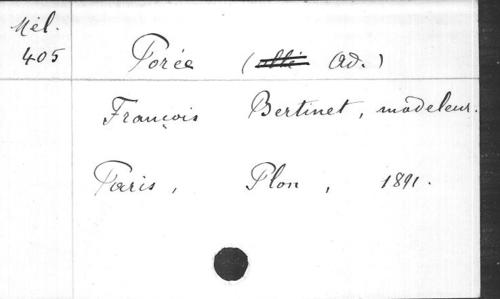 Mél.
405
Porée (Ad.)
François Bertinet, modeleur.
Paris, Plon, 1891.